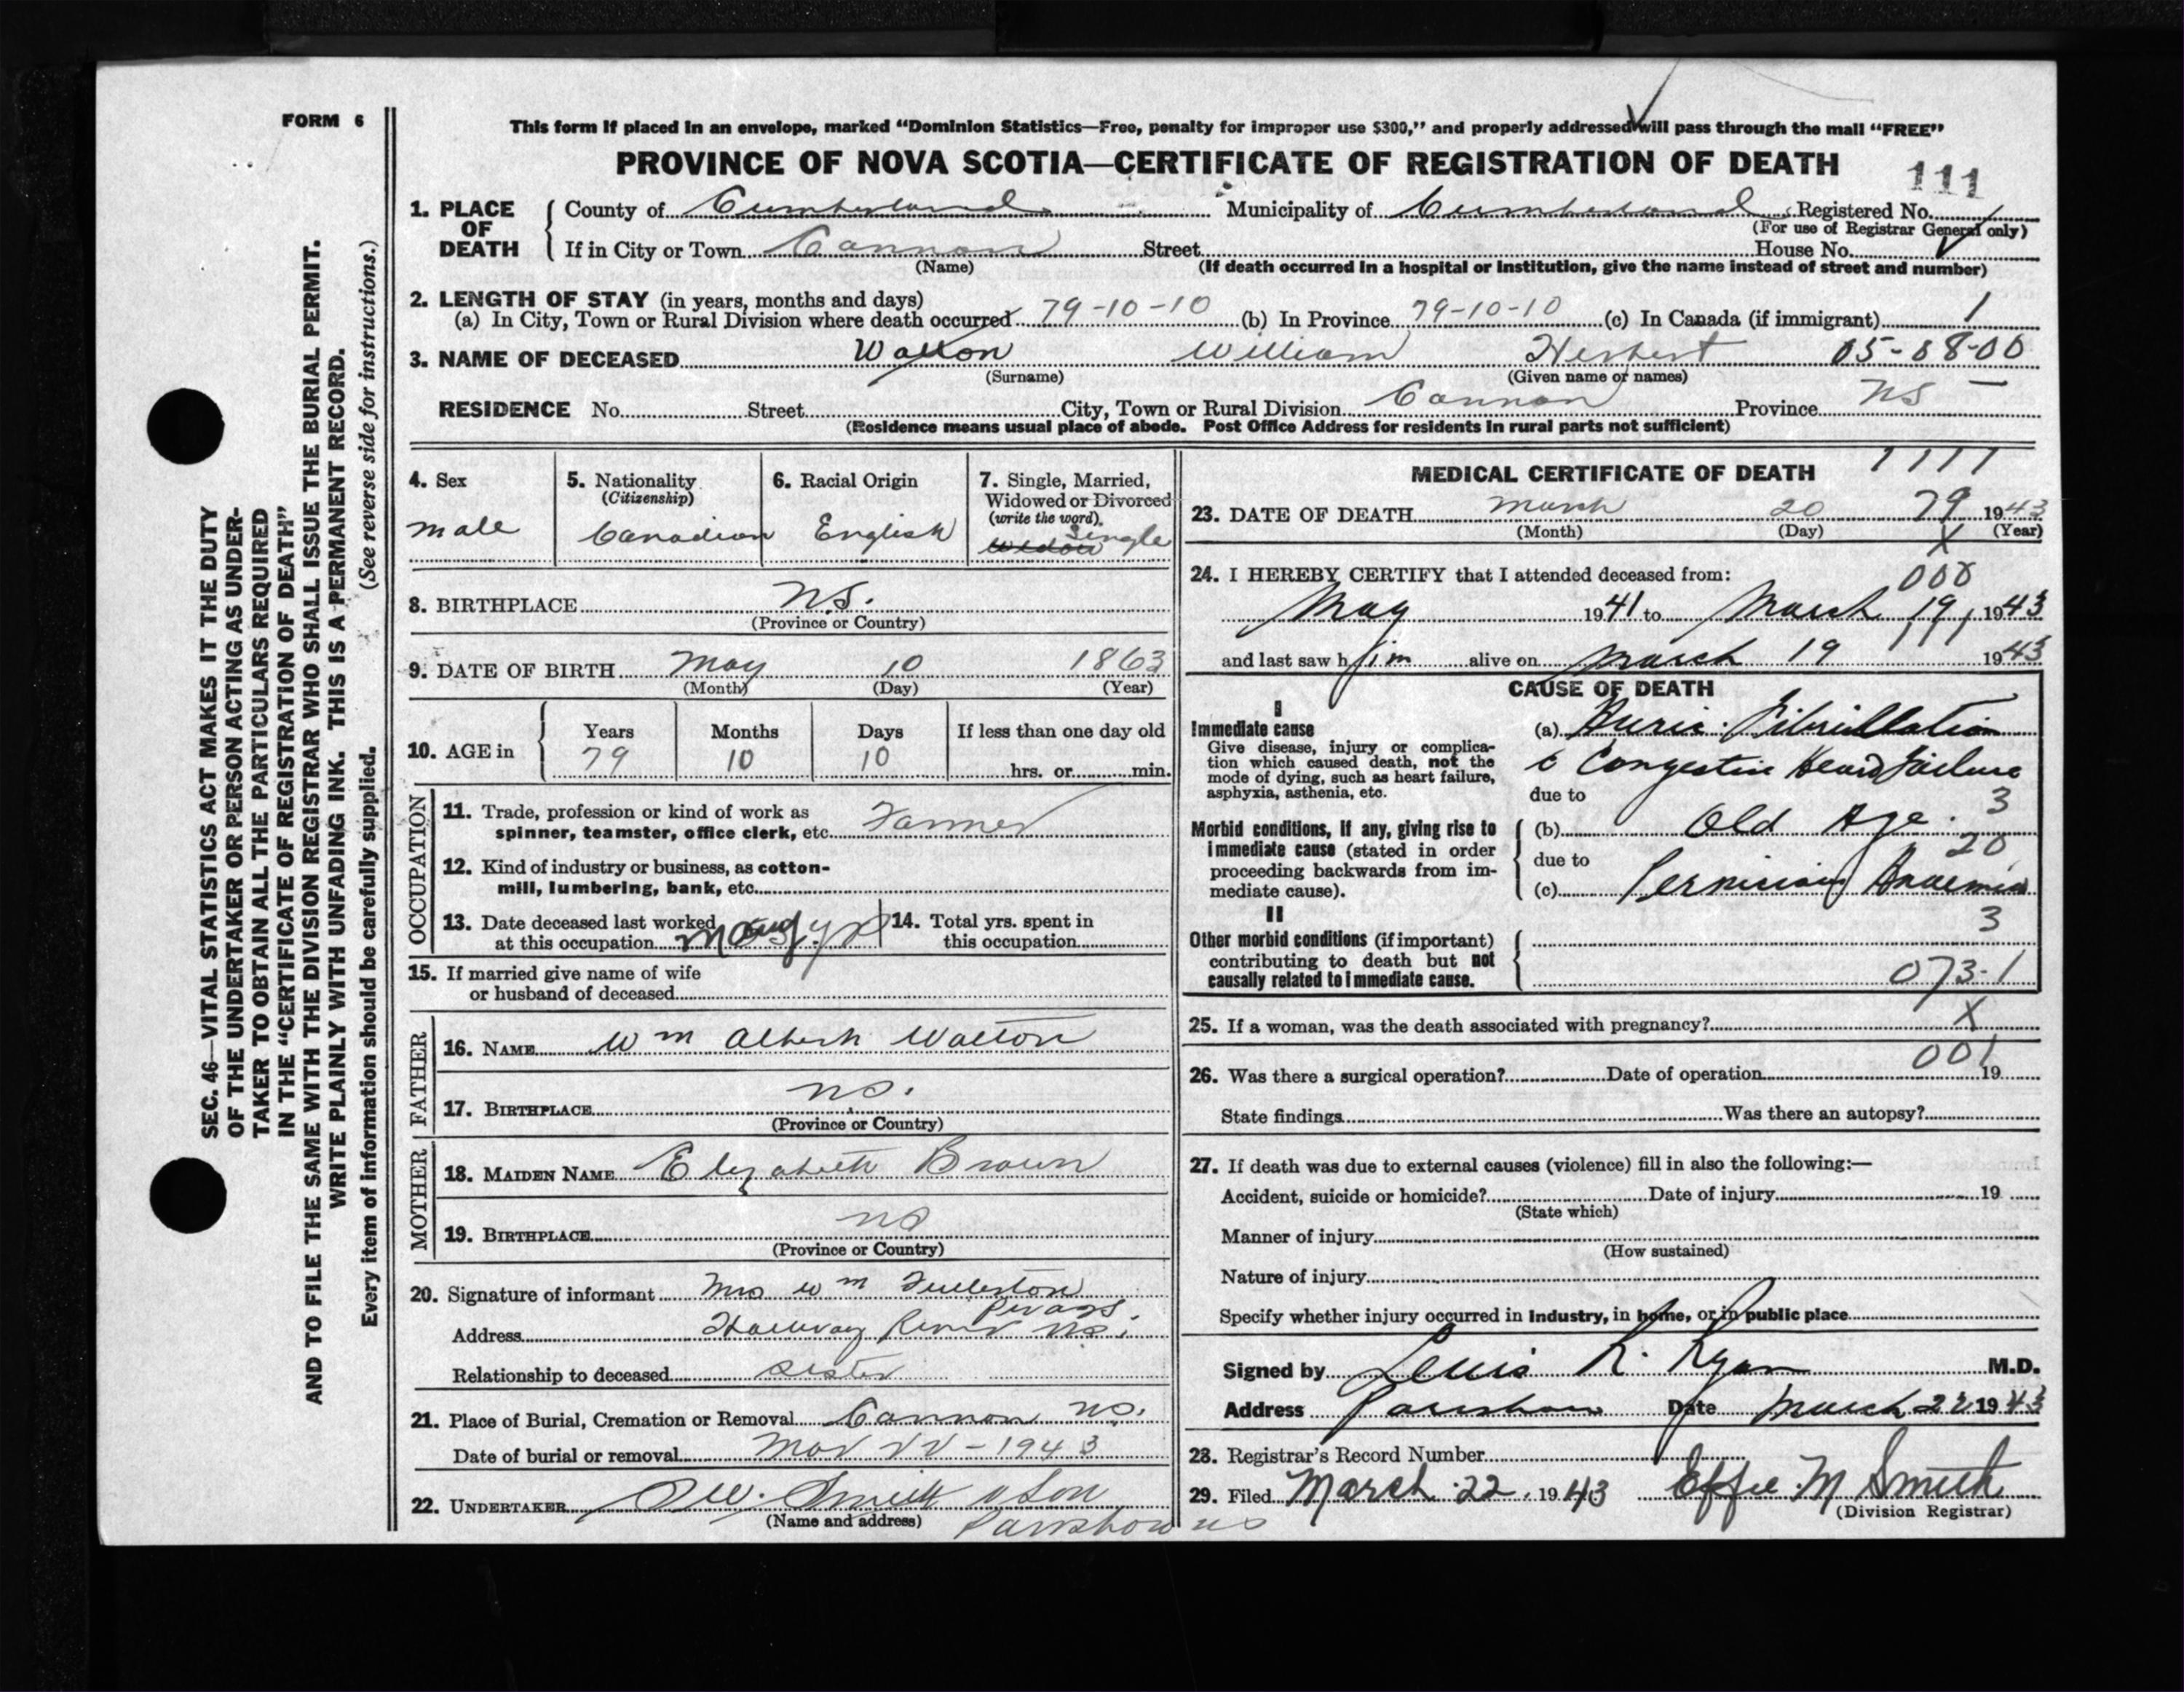 FORM 6
This form if placed in an envelope, marked “Dominion Statistics—Free, penalty for improper use $300,” and properly addressed will pass through the mail “FREE”
PROVINCE OF NOVA SCOTIA—CERTIFICATE OF REGISTRATION OF DEATH
111
1. PLACE OF DEATH
County of Cumberland Municipality of Cumberland Registered No.
(For use of Registrar General only)
If in City or Town Cannon Street House No.
(Name) (If death occurred in a hospital or institution, give the name instead of street and number)
2. LENGTH OF STAY (in years, months and days)
(a) In City, Town or Rural Division where death occurred 79-10-10 (b) In Province 79-10-10 (c) In Canada (if immigrant) 1
3. NAME OF DECEASED Walton William Herbert 05-08-00
(Surname) (Given name or names)
RESIDENCE No. Street City, Town or Rural Division Cannon Province NS —
(Residence means usual place of abode. Post Office Address for residents in rural parts not sufficient)
4. Sex
male
5. Nationality
(Citizenship)
Canadian
6. Racial Origin
English
7. Single, Married,
Widowed or Divorced
(write the word)
Widow Single
8. BIRTHPLACE N.S.
(Province or Country)
9. DATE OF BIRTH May 10 1863
(Month) (Day) (Year)
10. AGE in
Years Months Days If less than one day old
79 10 10 hrs. or min.
OCCUPATION
11. Trade, profession or kind of work as
spinner, teamster, office clerk, etc. Farmer
12. Kind of industry or business, as cotton-
mill, lumbering, bank, etc.
13. Date deceased last worked
at this occupation
14. Total yrs. spent in
this occupation
15. If married give name of wife
or husband of deceased
FATHER
16. NAME Wm Albert Walton
17. BIRTHPLACE NS.
(Province or Country)
MOTHER
18. MAIDEN NAME Elyzabeth Brown
19. BIRTHPLACE NS
(Province or Country)
20. Signature of informant Mrs Wm Fullerton
Address River NS.
Relationship to deceased sister
21. Place of Burial, Cremation or Removal Cannon NS.
Date of burial or removal Mar 22 - 1943
22. UNDERTAKER Smith & Son
(Name and address) Parrsboro NS
MEDICAL CERTIFICATE OF DEATH 1111
23. DATE OF DEATH March 20 79 1943
(Month) (Day) X (Year)
24. I HEREBY CERTIFY that I attended deceased from: 000
May 1941 to March 19, 1943
111
and last saw him alive on March 19 1943
CAUSE OF DEATH
I
Immediate cause
Give disease, injury or complica-
tion which caused death, not the
mode of dying, such as heart failure,
asphyxia, asthenia, etc.
(a) Auric. Fibrillation
c Congestive Heart Failure
due to 3
Morbid conditions, if any, giving rise to
immediate cause (stated in order
proceeding backwards from im-
mediate cause).
(b) Old Age.
due to 20
(c) Pernicious Anaemia
II
Other morbid conditions (if important)
contributing to death but not
causally related to immediate cause.
3
073-1
25. If a woman, was the death associated with pregnancy? X
001
26. Was there a surgical operation? Date of operation 19
State findings Was there an autopsy?
27. If death was due to external causes (violence) fill in also the following:—
Accident, suicide or homicide? Date of injury 19
(State which)
Manner of injury
(How sustained)
Nature of injury
Specify whether injury occurred in industry, in home, or in public place
Signed by Lewis R. Ryan M.D.
Address Parrsboro Date March 22 1943
28. Registrar's Record Number
29. Filed March 22, 1943 Effie M Smith
(Division Registrar)
SEC. 46—VITAL STATISTICS ACT MAKES IT THE DUTY
OF THE UNDERTAKER OR PERSON ACTING AS UNDER-
TAKER TO OBTAIN ALL THE PARTICULARS REQUIRED
IN THE “CERTIFICATE OF REGISTRATION OF DEATH”
AND TO FILE THE SAME WITH THE DIVISION REGISTRAR WHO SHALL ISSUE THE BURIAL PERMIT.
WRITE PLAINLY WITH UNFADING INK. THIS IS A PERMANENT RECORD.
Every item of information should be carefully supplied. (See reverse side for instructions.)